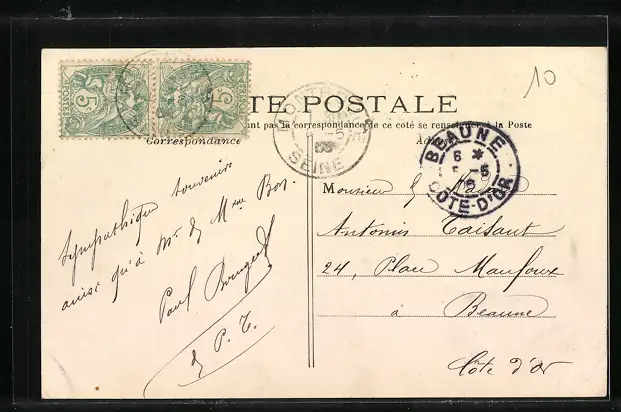 10
POSTES
5
5
TE POSTALE
ant pas la correspondance de ce coté se renseigner à la Poste
Correspondance
SEINE
BEAUNE
6 *
5
COTE-D'OR
Monsieur &
Antonin Taisant
24, Place Maufoux
à Beaune
Côte d'Or
Sympathique souvenir
ainsi qu'à Mr & Mme
Paul
& P. T.